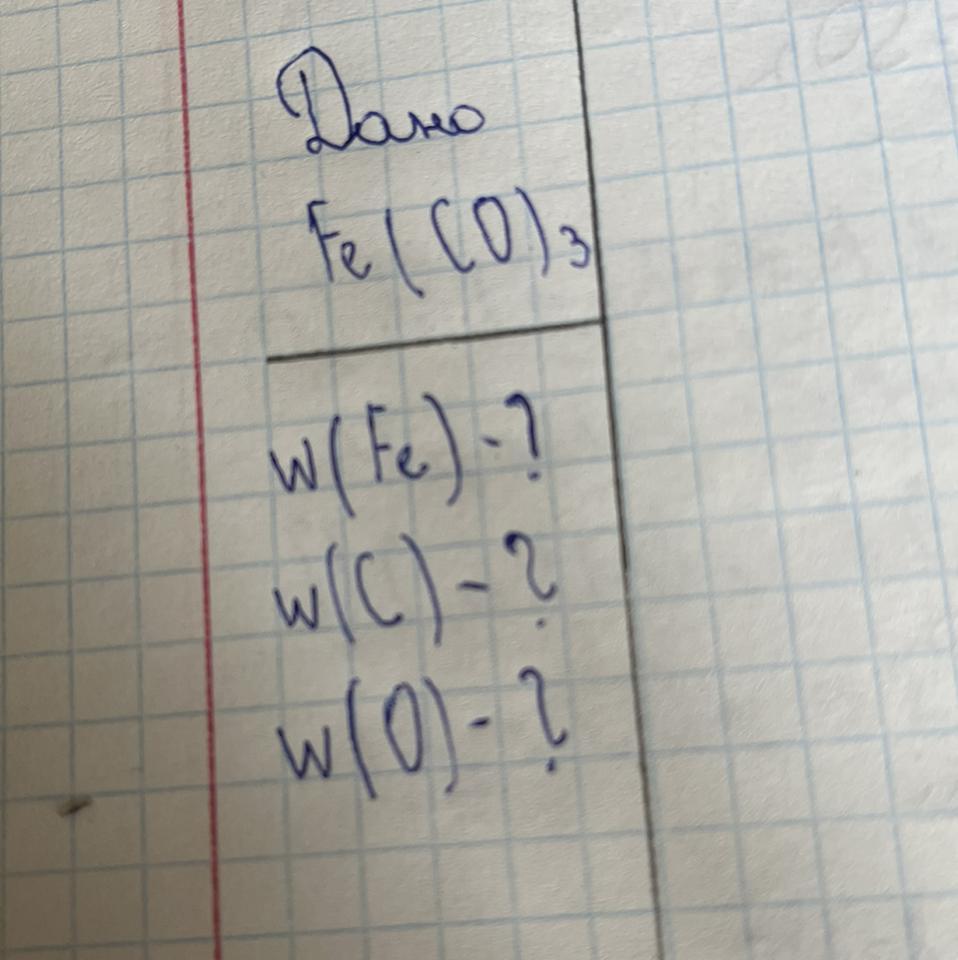 Дано
Fe(CO)3
w(Fe)-?
w(C)-?
w(O)-?